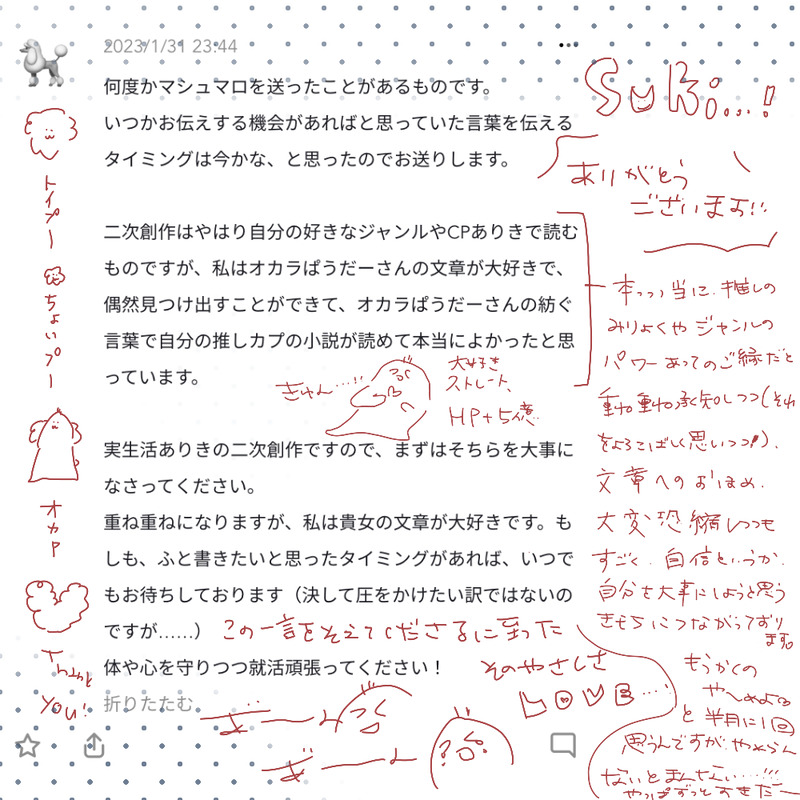 2023/1/31 23:44
何度かマシュマロを送ったことがあるものです。
いつかお伝えする機会があればと思っていた言葉を伝える
タイミングは今かな、と思ったのでお送りします。
二次創作はやはり自分の好きなジャンルやCPありきで読む
ものですが、私はオカラぱうだーさんの文章が大好きで、
偶然見つけ出すことができて、オカラぱうだーさんの紡ぐ
言葉で自分の推しカプの小説が読めて本当によかったと思
っています。
実生活ありきの二次創作ですので、まずはそちらを大事に
なさってください。
重ね重ねになりますが、私は貴女の文章が大好きです。も
しも、ふと書きたいと思ったタイミングがあれば、いつで
もお待ちしております（決して圧をかけたい訳ではないの
ですが……）
体や心を守りつつ就活頑張ってください！
折りたたむ
トイプー
ちょいプー
オカP
Thank
you!
きゅん…
大好き
ストレート、
HP+5億
この一言をそえてくださるに至った
そのやさしさ
LOVE…
ぎーーん
ぎーーん
Suki...!
ありがとう
ございます!!
本っっっ当に、推しの
みりょくや ジャンルの
パワーあってのご縁だと
重々承知しつつ(それ
をよろこばしく思いつつ!)、
文章へのおほめ、
大変恐縮しつつも
すごく、自信というか
自分を大事にしようと思う
きもちにつながっており
ます。
もうかくの
や〜めよる
と 半月に1回
思うんですが やめらん
ないとまんせい…!!!
やっぱずっと大きだー